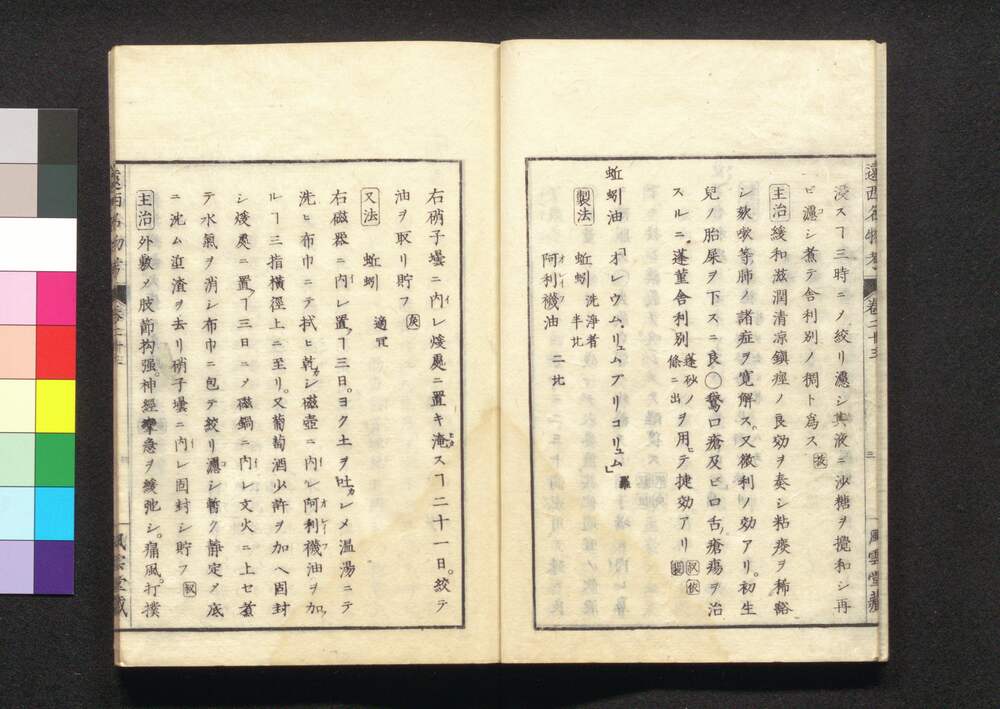 遠西名物考
巻二十三
三
風雲堂蔵
浸スヿ三時ニノ絞リ濾シ其液ニ沙糖ヲ攪和シ再
ヒ濾シ煮テ舎利別ノ稠ト為ス
主治 緩和滋潤清凉鎮痙ノ良効ヲ奏シ粘痰ヲ稀豁
シ欬嗽等肺ノ諸症ヲ寛解ス又微利ノ効アリ。初生
兒ノ胎屎ヲ下スニ良〇鵞口瘡及ヒ口舌瘡瘍ヲ治
スルニ蓬菫舎利別 蓬砂ノ條ニ出ヅヲ用テ捷効アリ
蚯蚓油「オレウム、リュムブリコリュム」羅
製法 蚯蚓 洗浄者 半比
阿利襪油 二比
右硝子壜ニ内レ煖處ニ置キ淹スヿ二十一日。絞テ
油ヲ取リ貯フ
又法 蚯蚓 適宜
右磁器ニ内レ置ヿ三日。ヨク土ヲ吐カシメ温湯ニテ
洗ヒ布巾ニテ拭ヒ乾カシ磁壺ニ内レ阿利襪油ヲ加
ルヿ三指横徑上ニ至リ。又葡萄酒少許ヲ加ヘ固封
シ煖處ニ置ヿ三日ニノ磁鍋ニ内レ文火ニ上セ煮
テ水氣ヲ消シ布巾ニ包テ絞リ濾シ暫ク静定ノ底
ニ沈ム渣ヲ去リ硝子壜ニ内レ固封シ貯フ
主治 外敷ノ肢節拘强。神經攣急ヲ緩弛シ。痛風。打撲
遠西名物考
風雲堂蔵